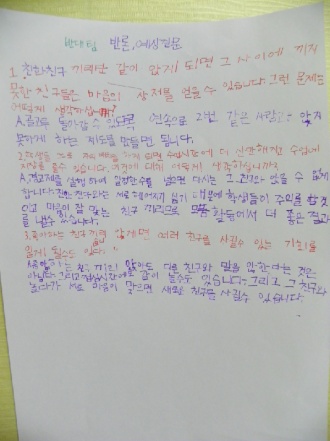 반대팀 반론, 예상질문
1. 친한친구 끼리만 같이 앉게 되면 그 사이에 끼지
못한 친구들은 마음의 상처를 얻을 수 있습니다. 그런 문제는
어떻게 생각하십니까
A. 골고루 돌아갈 수 있도록 연속으로 2번 같은 사람은 앉지
못하게 하는 제도를 만들면 됩니다.
수업시간에 더 산만해져 수업에
지장을 줄수 있습니다. 어떻게 생각하십니까?
A. 경고제를 실행하여 일정한수를 넘으면 다시는 그 친구랑 앉을 수 없게
합니다. 친한 친구와는 서로 떨어지기 싫기 때문에 학생들이 주의를
하고 마음이 잘 맞는 친구 끼리므로 모둠 활동에서 더 좋은 결과
를 낼수 있습니다.
3. 좋아하는 친구 끼리 앉게되면 여러 친구를 사귈수 있는 기회를
잃게 될수도 있다.
A. 좋아하는 친구 끼리 앉아도 다른 친구와 말을 안한다는 것은
아닙니다. 그리고 점심시간에도 같이 놀수도 있습니다. 그리고 그 친구와
놀다가 서로 마음이 맞으면 새로운 친구를 사귈수 있습니다.